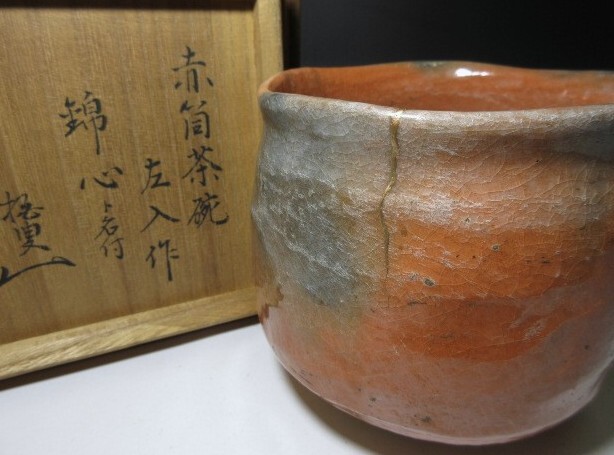 赤筒茶碗
左入作
錦心
ト名付